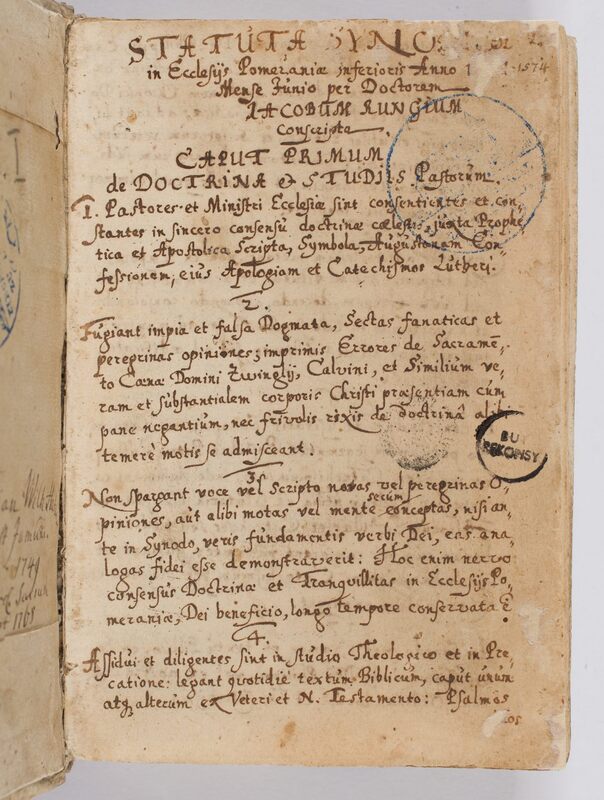 STATUTA SYNO
in Ecclesijs Pomeraniæ inferioris Anno 1 1574
Mense Junio per Doctorem
IACOBUM RUNGIUM
Conscripta
CAPUT PRIMUM
de DOCTRINA & STUDIIS Pastorum.
I. Pastores et Ministri Ecclesiæ sint consentientes et con-
stantes in sincero consensu doctrinæ cœlestis, juxta Prophe
tica et Apostolica Scripta, Symbola, Augustanam Con-
fessionem, eius Apologiam et Catechismos Lutheri.
2.
Fugiant impia et falsa Dogmata, Sectas fanaticas et
peregrinas opiniones; imprimis Errores de Sacramē-
to Cœnæ Domini Zwinglij, Calvini, et Similium ve-
ram et substantialem corporis Christi præsentiam cum
pane negantium, nec frivolis rixis de doctrinâ alibi
temerè motis se admisceant.
3.
Non spargant voce vel Scripto novas vel peregrinas O-
piniones, aut alibi motas vel mente secum conceptas, nisi an-
te in Synodo, veris fundamentis verbi Dei, eas ana-
logas fidei esse demonstraverit: Hoc enim nervo
consensus Doctrinæ et Tranquillitas in Ecclesijs Po-
meraniæ, Dei beneficio, longo tempore conservata ē.
4.
Assidui et diligentes sint in studio Theologico et in Pre-
catione: legant quotidie textum Biblicum, caput unum
atq alterum ex Veteri et N. Testamento: Psalmos
BU
REKOPISY
I
1749
1768